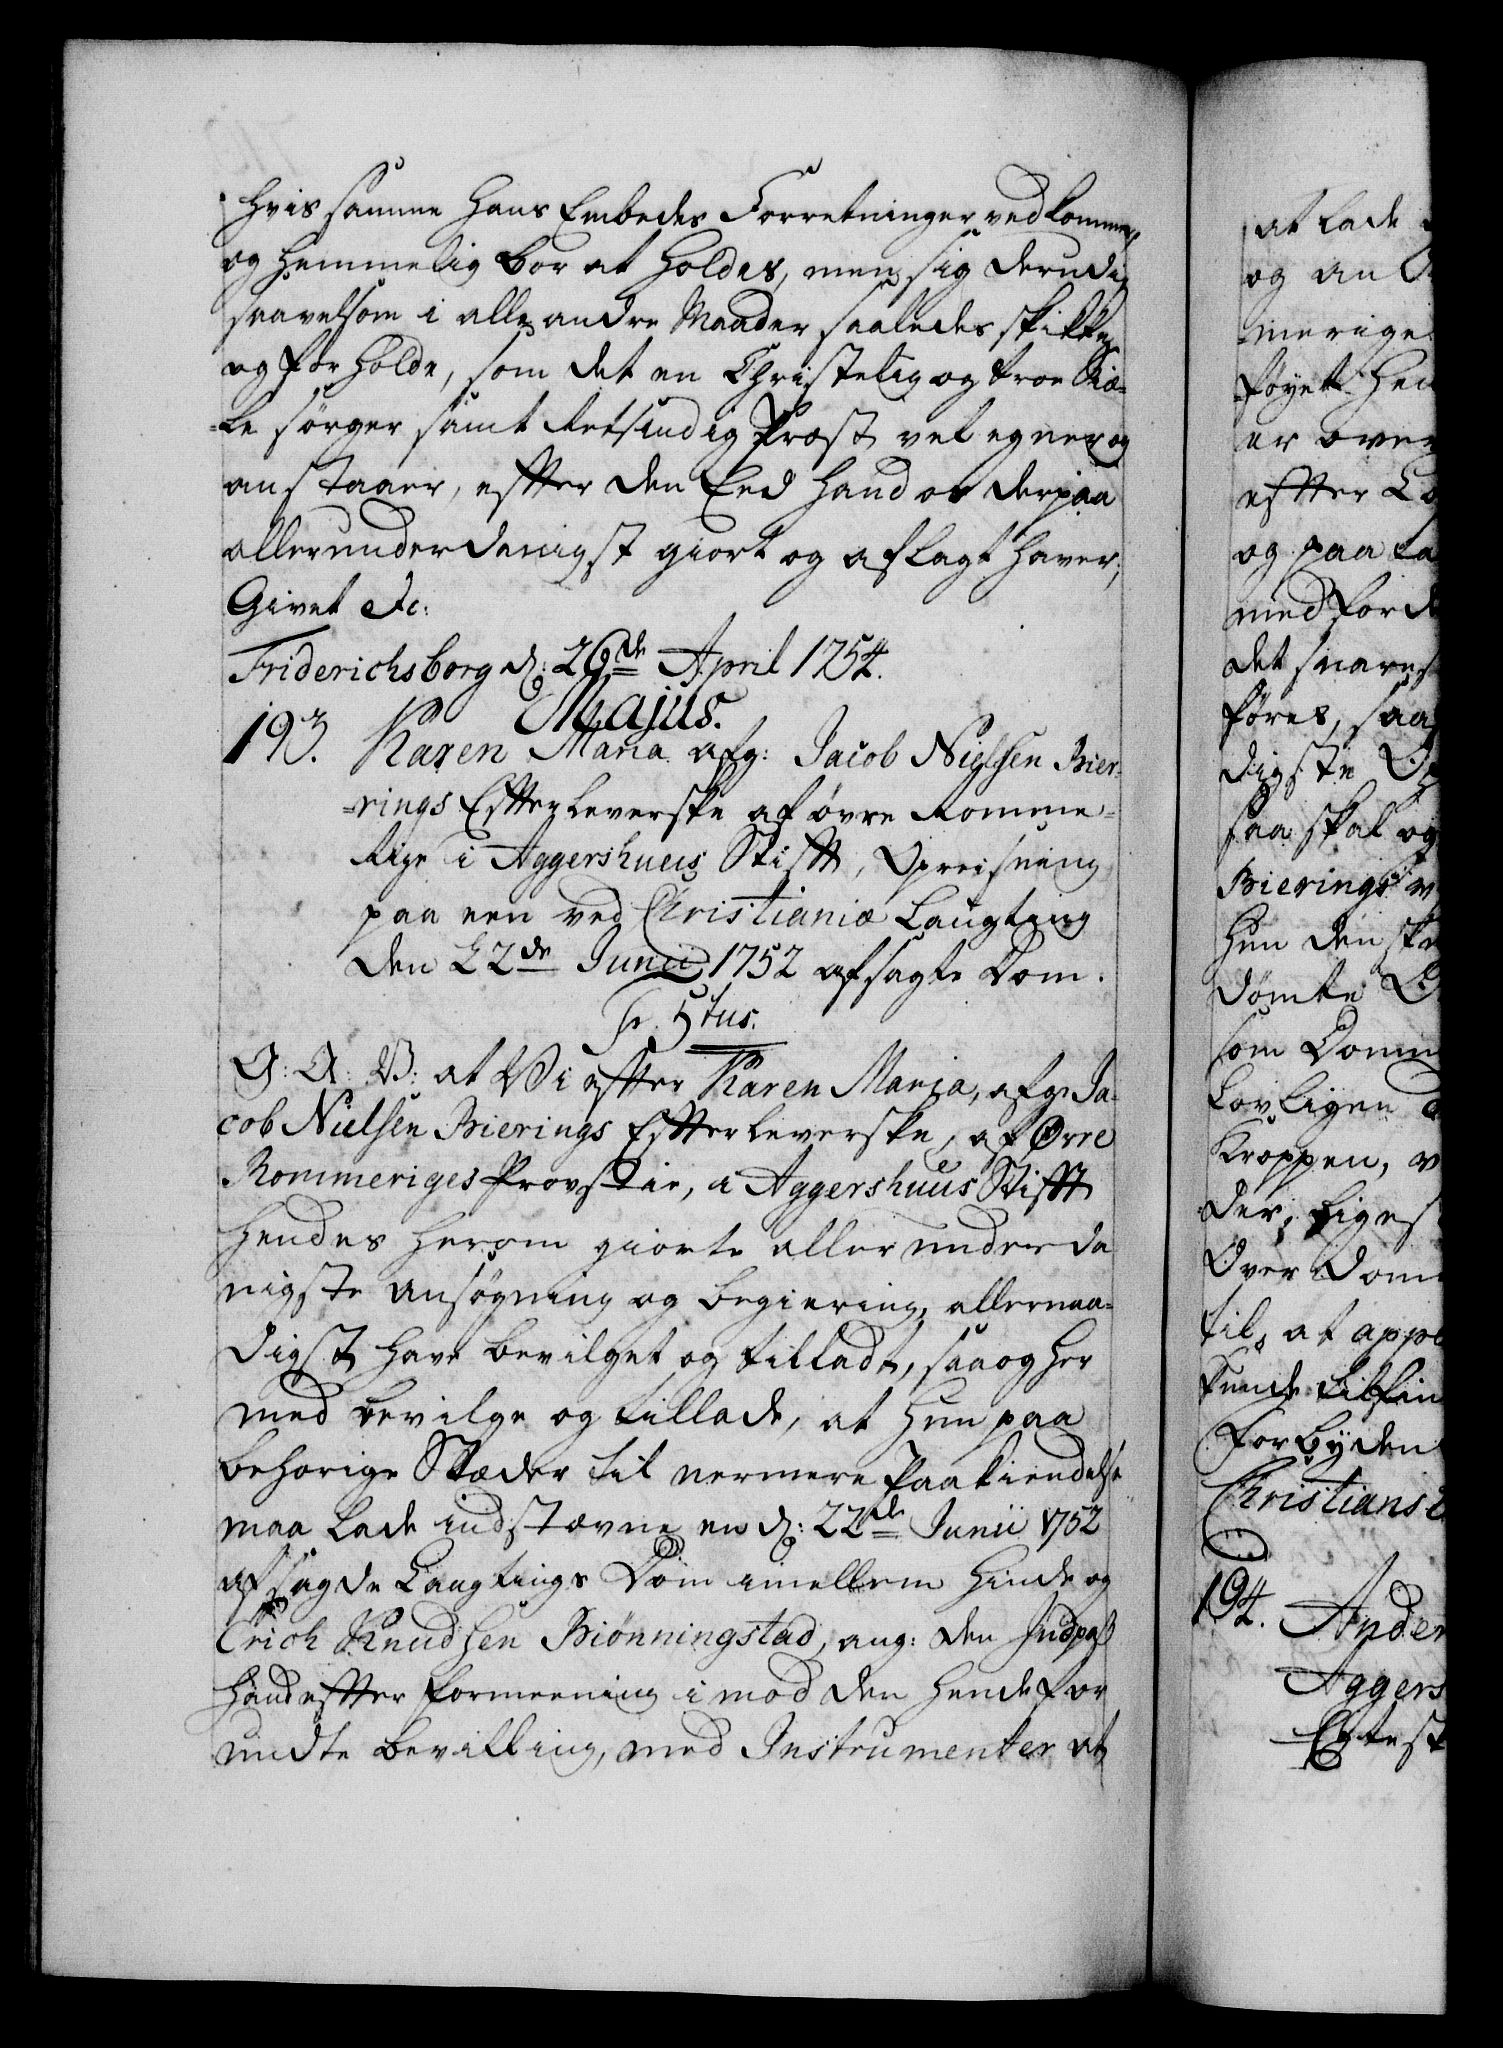 hvis samme hans Embedes Forretninger vedkommer
og hemmelig bør at holdes, men sig derudi
saavelsom i alle andre Maader saaledes skikke
og forholde, som det en Christelig og troe Siæ-
-le sørger samt Retsindig Prost vel egner og
anstaaer, effter den Eed hand os derpaa
allerunderdanigst giort og aflagt haver,
Givet etc:
Friderichsborg d: 26de April 1754.
Majus.
193. Karen Maria afg: Jacob Nielsen Bier-
-rings Effterleverske af øvre Romme-
rige i Aggershuus Stifft, Opreisning
paa een ved Christianiæ Laugting
den 22de Junii 1752 afsagte Dom.
Fr. 5tus.
G: A: V: at Vi effter Karen Maria, afg: Ja-
cob Nielsen Bierings Effterleverske, af Øvre
Rommeriges Provstie, i Aggershuus Stifft
hendes herom giorte allerunderda
nigste ansøgning og begiering, allernaa-
digst have bevilget og tilladt, saa og her
med bevilge og tillade, at hun paa
behørige Stæder til nermere Paakiendelse
maa lade indstævne en d: 22de Junii 1752
afsagde Laugtings Dom imellem hinde og
Erich Knudsen Biønningstad, ang: den Indpas
hand effter formeening imod den hende for
undte bevilling, med Instrumenter at
at lade
og an
-merige
føyet hen
er over
effter Lo
og paa la
med ford
det snares
føres, saa
digste Op
saa skal og
Bierings
hun den
dømte
som Domm
Lovligen
Kroppen,
der, liges
Over Dom
til, at appe
kunde
Forbyden
Christiansb
194. Ander
Aggers